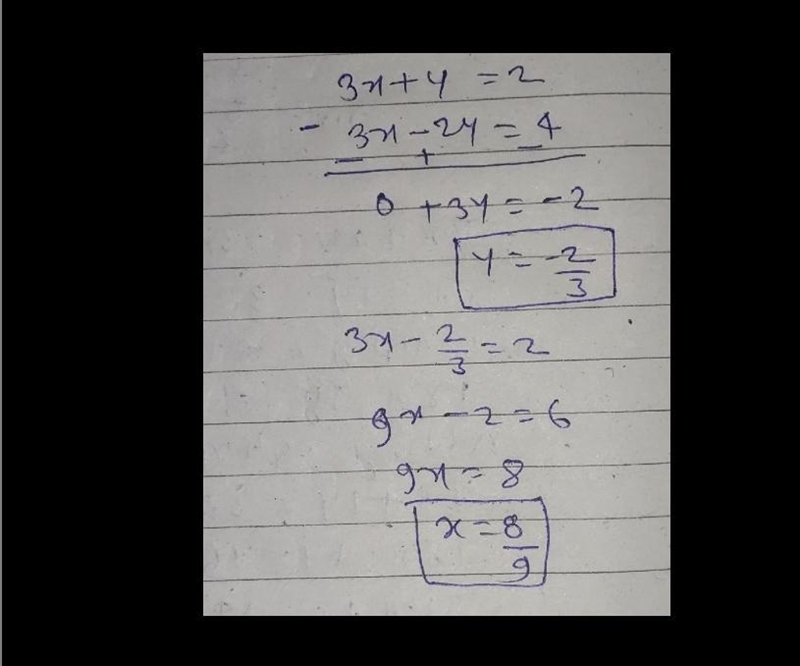 3x + y = 2
- 3x - 2y = 4
- + -
0 + 3y = -2
y = -2/3
3x - 2/3 = 2
9x - 2 = 6
9x = 8
x = 8/9